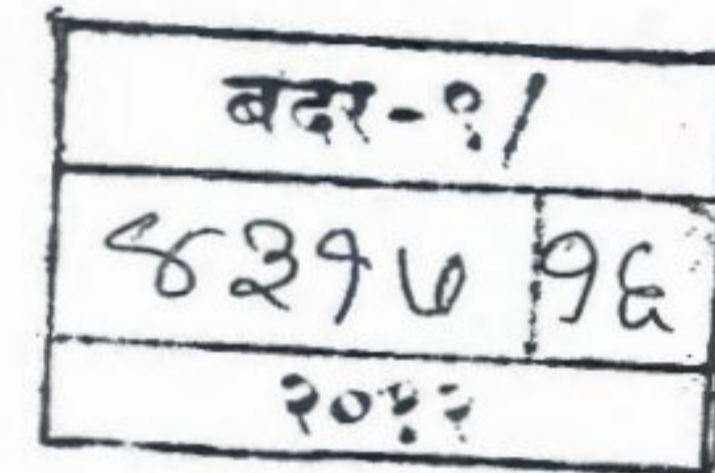 बदर-१/
४३१७ १६
२०१२